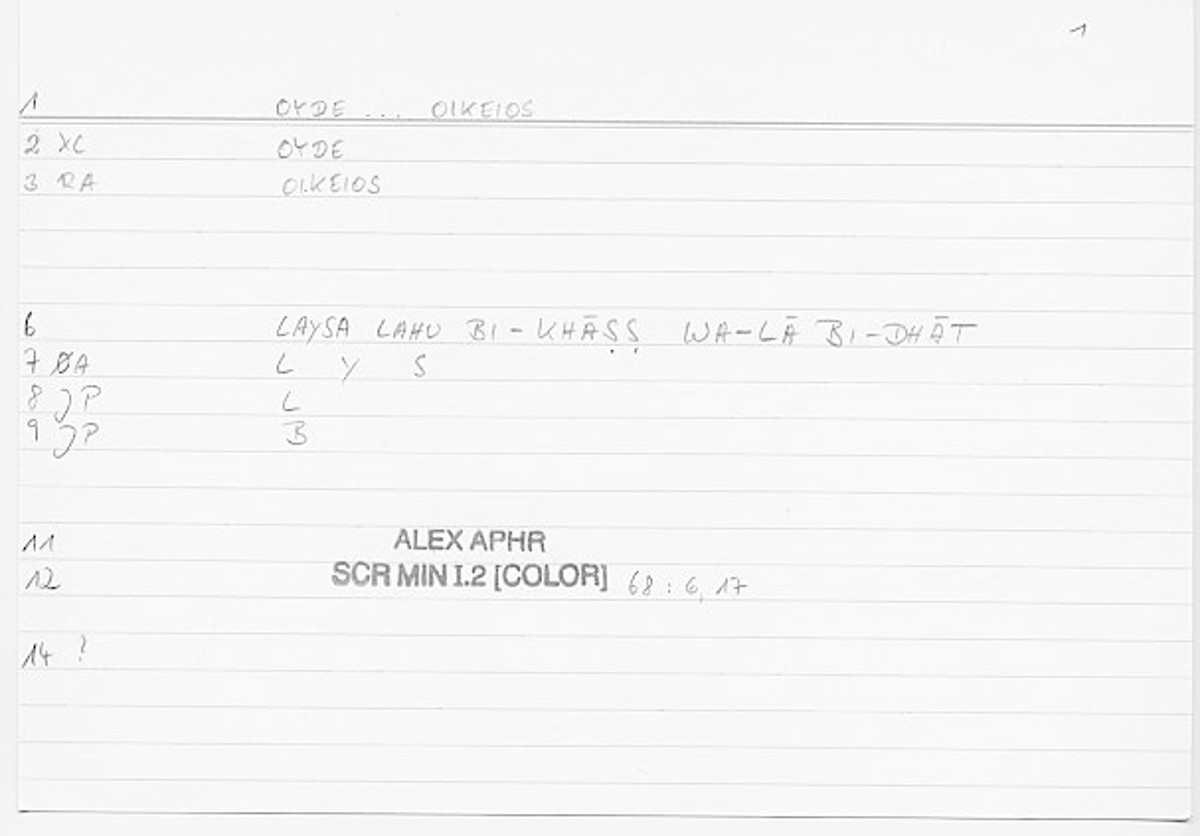 1
1 OYDE ... OIKEIOS
2 XC OYDE
3 RA OIKEIOS
6 LAYSA LAHU BI-KHĀṢṢ WA-LĀ BI-DHĀT
7 ØA L Y S
8 JP L
9 JP B
11 ALEX APHR
12 SCR MIN I.2 [COLOR] 68 : 6, 17
14 ?